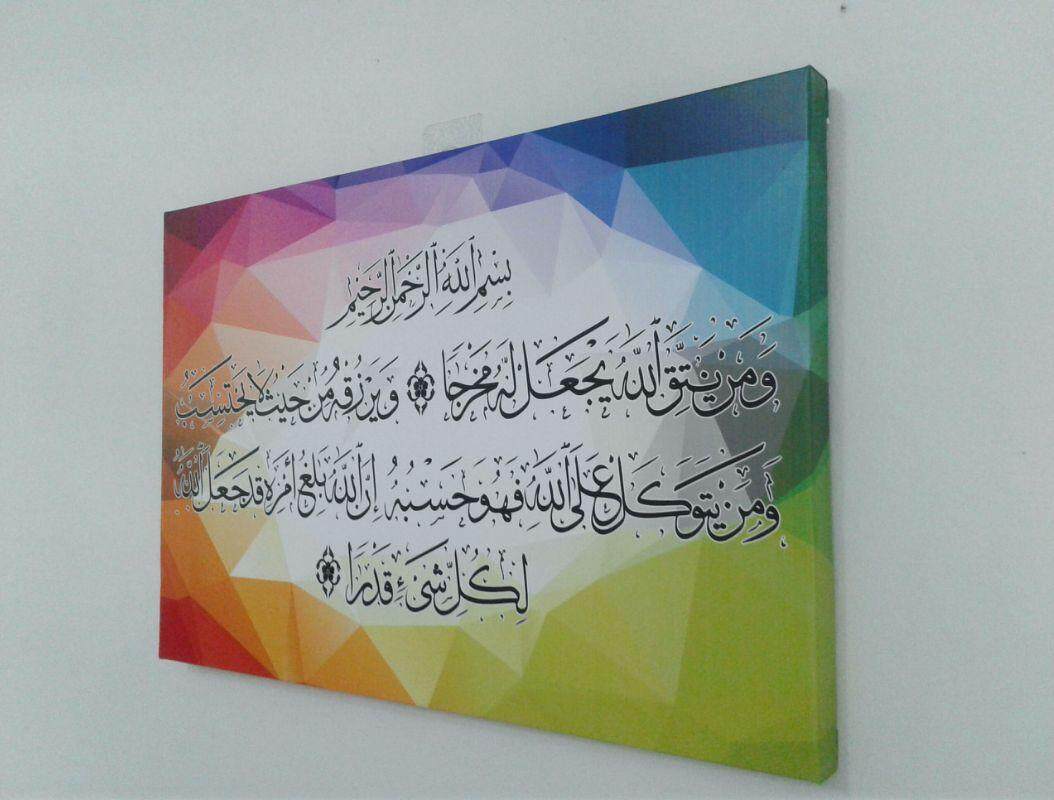 بِسْمِ ٱللَّهِ ٱلرَّحْمَٰنِ ٱلرَّحِيمِ
وَمَن يَتَّقِ ٱللَّهَ يَجْعَل لَّهُۥ مَخْرَجًا ۞ وَيَرْزُقْهُ مِنْ حَيْثُ لَا يَحْتَسِبُ
وَمَن يَتَوَكَّلْ عَلَى ٱللَّهِ فَهُوَ حَسْبُهُۥٓ إِنَّ ٱللَّهَ بَٰلِغُ أَمْرِهِۦ قَدْ جَعَلَ ٱللَّهُ
لِكُلِّ شَىْءٍ قَدْرًا ۞